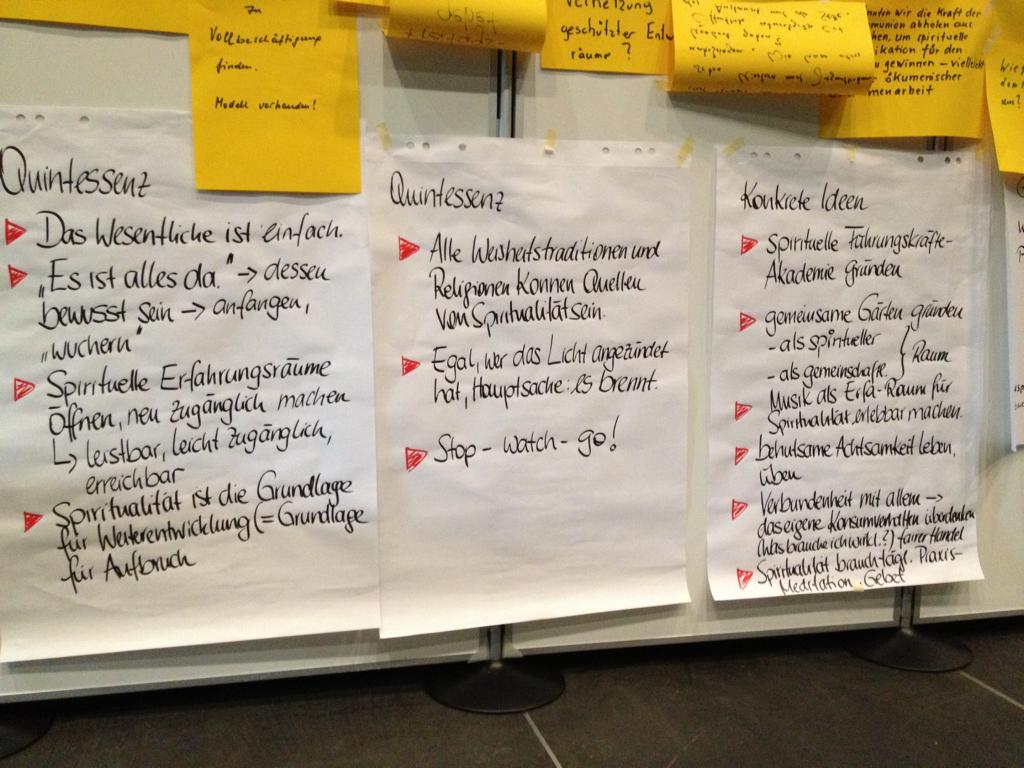 zu
Vollbeschäftigung
finden.
Modell vorhanden!
Vernetzung
geschützter
räume?
wir die Kraft der
abholen aus
um spirituelle
ikation für den
zu gewinnen - vielleicht
ökumenischer
menarbeit
Quintessenz
Das Wesentliche ist einfach.
„Es ist alles da." → dessen
bewusst sein → anfangen,
„wuchern"
Spirituelle Erfahrungsräume
öffnen, neu zugänglich machen
↳ leistbar, leicht zugänglich,
erreichbar
Spiritualität ist die Grundlage
für Weiterentwicklung (= Grundlage
für Aufbruch
Quintessenz
Alle Weisheitstraditionen und
Religionen können Quellen
von Spiritualität sein.
Egal, wer das Licht angezündet
hat, Hauptsache: es brennt.
Stop - watch - go!
Konkrete Ideen
Spirituelle Führungskräfte-
Akademie gründen
gemeinsame Gärten gründen
- als spiritueller
- als gemeinschaftl. } Raum
Musik als Erfa-Raum für
Spiritualität erlebbar machen.
behutsame Achtsamkeit leben,
üben
Verbundenheit mit allem →
das eigene Konsumverhalten überdenken
(Was brauche ich wirkl.?) fairer Handel
Spiritualität braucht tägl. Praxis-
Meditation. Gebet